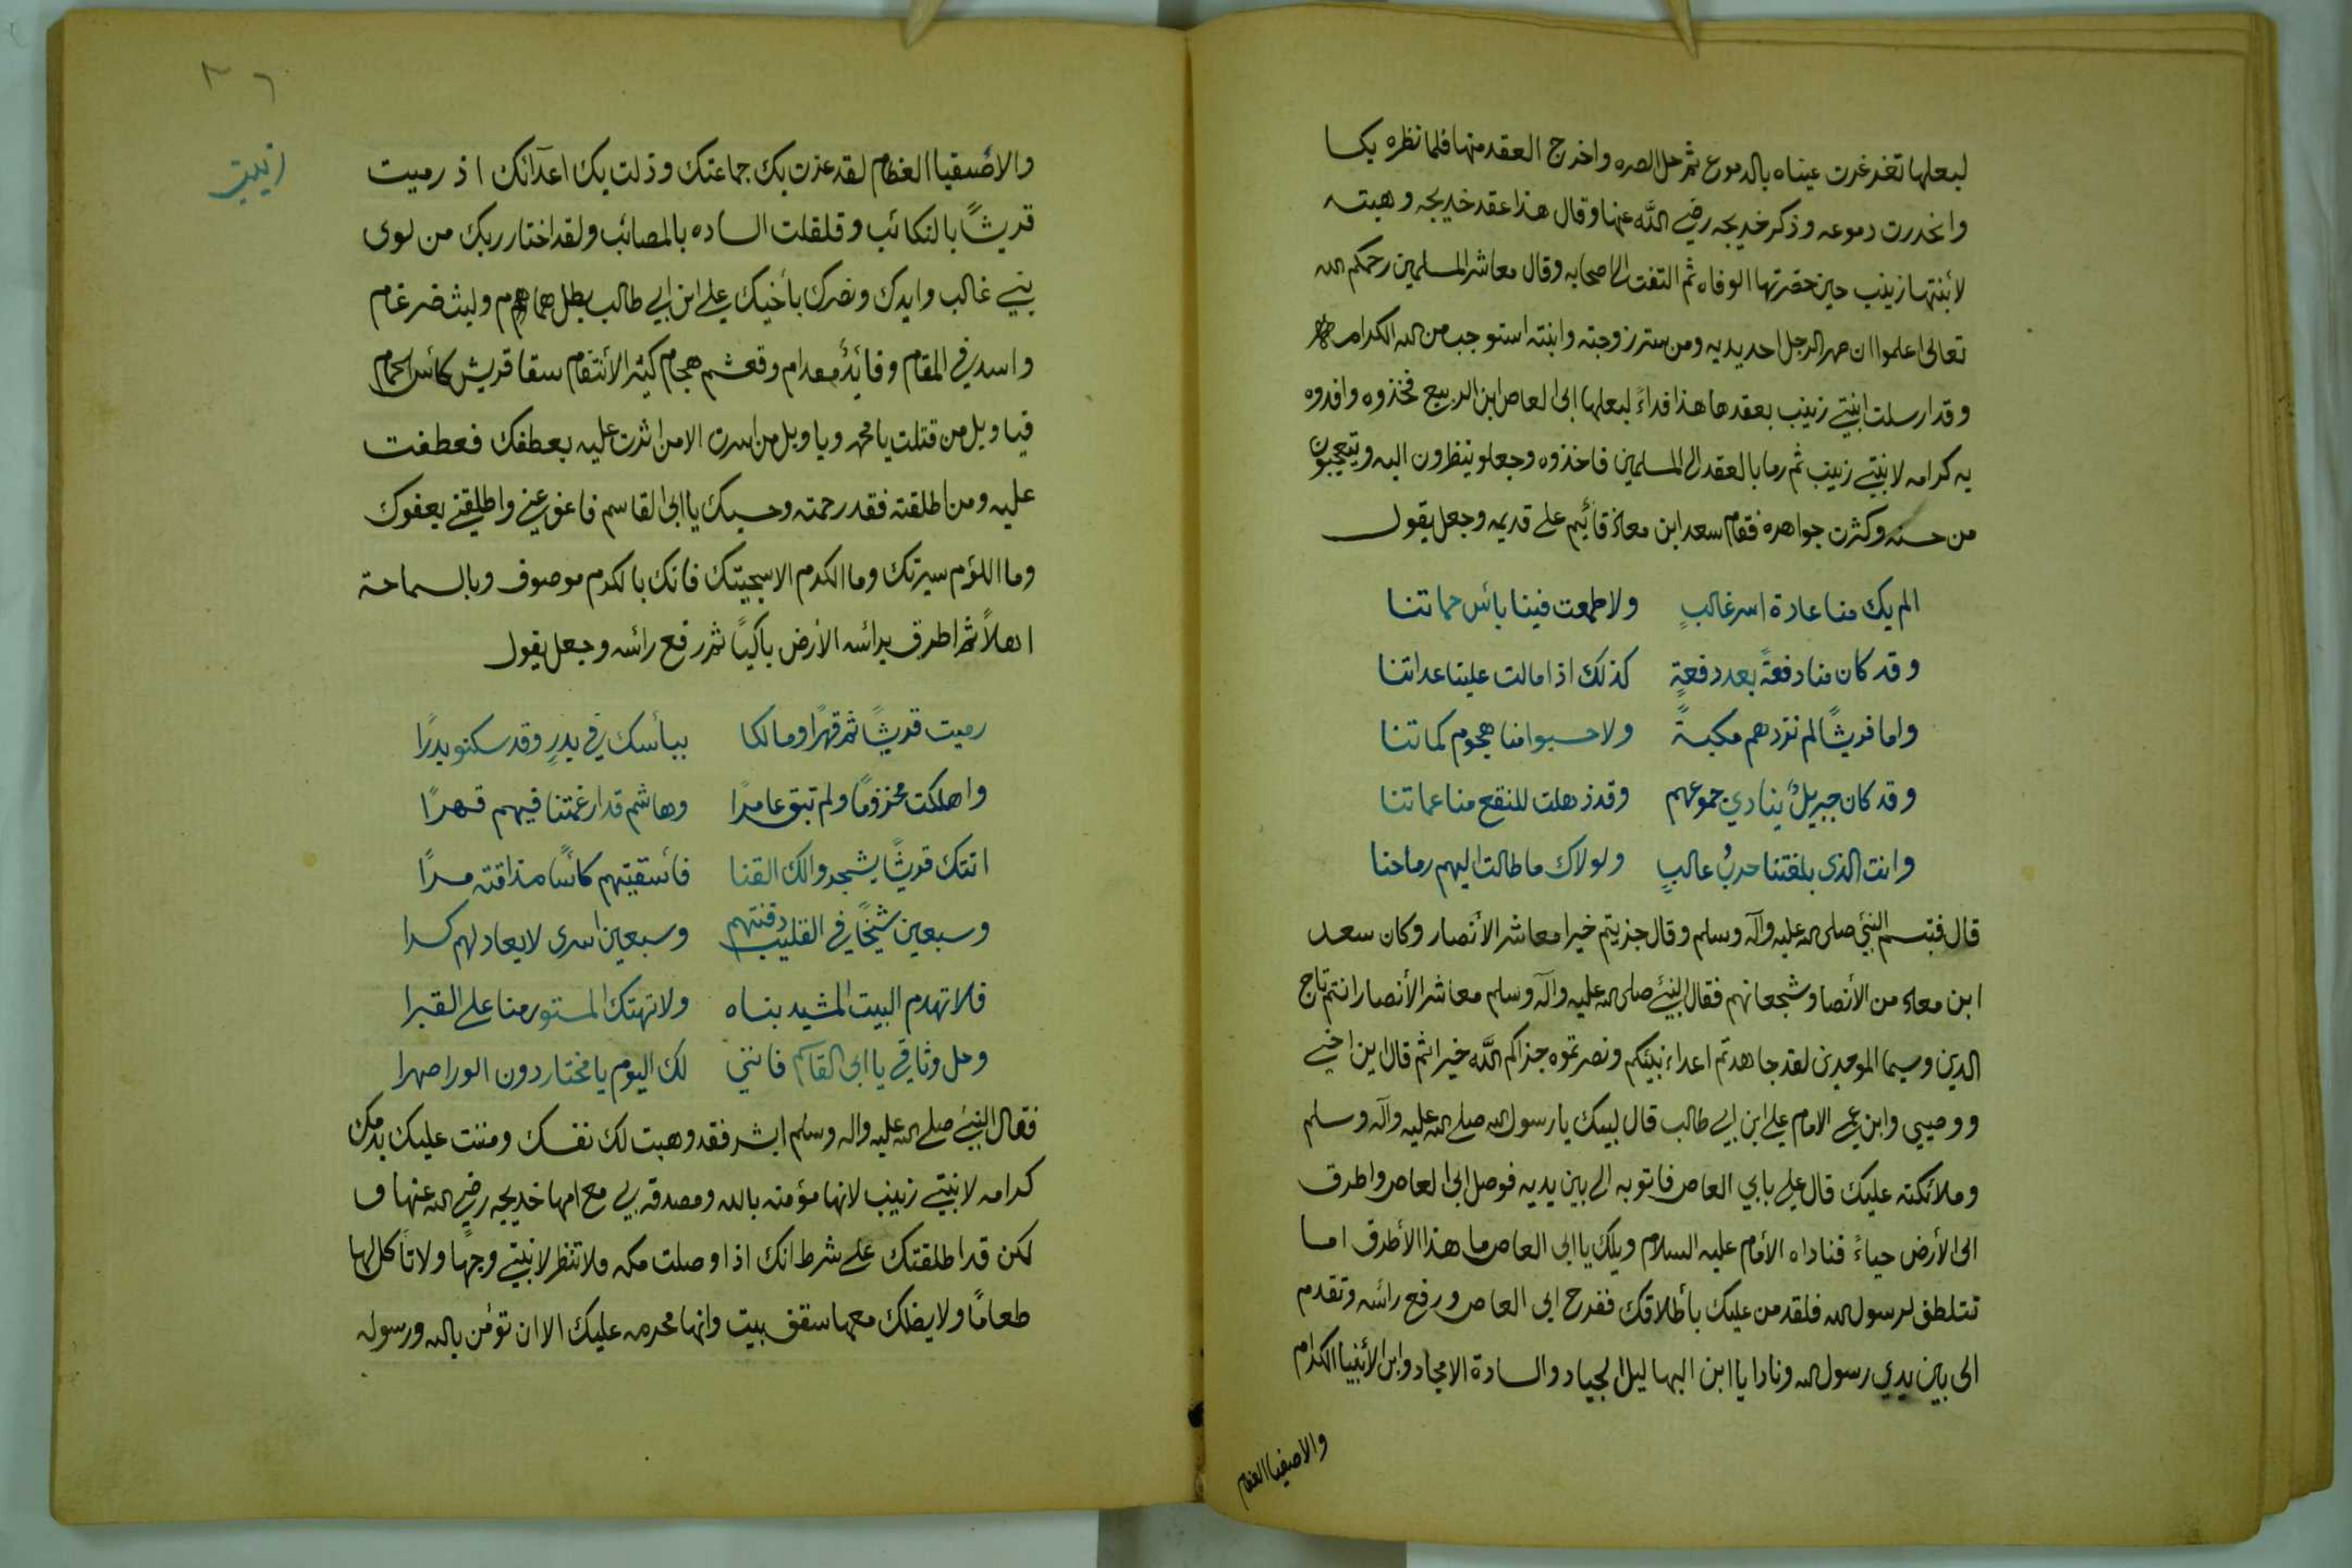 لبعلها تغرغرت عيناه بالدموع ثم حل الصره واخرج العقد منها فلما نظره بكا
وانحدرت دموعه وذكر خديجه رضي الله عنها وقال هذا عقد خديجه وهبته
لأبنتها زينب حين حضرتها الوفاه ثم التفت الى اصحابه وقال معاشر المسلمين رحمكم الله
تعالى اعلموا ان صهر الرجل احد يديه ومن ستر زوجته وابنته استوجب من الله الكرامه
وقد ارسلت ابنتي زينب بعقدها هذا فداءً لبعلها ابى العاص ابن الربيع فخذوه وافدوه
به كرامه لابنتي زينب ثم رما بالعقد الى المسلمين فاخذوه وجعلو ينظرون اليه ويتعجبون
من حسنه وكثرت جواهره فقام سعد ابن معاذ قائيم على قديمه وجعل يقول
الم يك منا عادة اسر غالبٍ ولا طمعت فينا بأس حماتنا
وقد كان منا دفعةً بعد دفعةٍ كذلك اذا مالت علينا عداتنا
واما قريشًا لم نزدهم مكبةً ولا حسبوا منا هجوم كماتنا
وقد كان جبريلٌ ينادي جموعهم وقد ذهلت للنقع منا عماتنا
وانت الذى بلغتنا حربُ غالبٍ ولولاك ما طالت اليهم رماحنا
قال فتبسم النبي صلى الله عليه وآله وسلم وقال جزيتم خيرا معاشر الأنصار وكان سعد
ابن معاد من الأنصا وشجعانهم فقال النبي صلى الله عليه وآله وسلم معاشر الأنصار انتم تاج
الدين وسيما الموحدين لقد جاهدتم اعداء نبيكم ونصرتموه جزاكم الله خيرا ثم قال اين اخي
ووصيي وابن عمي الامام علي ابن ابي طالب قال لبيك يا رسول الله صلى الله عليه وآله وسلم
وملائكته عليك قال علي بابي العاص فاتو به الى بين يديه فوصل ابى العاص واطرق
الى الأرض حياءً فناداه الأمام عليه السلام ويلك يا ابى العاص ما هذا الأطرق اما
تتلطف لرسول الله فلقد من عليك بأطلاقك ففرح ابى العاص ورفع رائسه وتقدم
الى بين يدي رسول الله ونادا يا ابن البهاليل الجياد والسادة الامجاد وابن الأنبيا الكرام
والاصفيا العظام
٣٦
زينب
والأصفيا العظام لقد عزت بك جماعتك وذلت بك اعدآئك اذ رميت
قريشًا بالنكائب وقلقلت الساده بالمصائب ولقد اختار ربك من لوى
بني غالب وايدك ونصرك بأخيك علي ابن ابي طالب بطل همام وليث ضرغام
واسد في المقام وقائدٌ مقدام وقعشم هجام كثير الأنتقام سقا قريش كأس الحمام
فيا ويل من قتلت يا محمد ويا ويل من اسرت الا من اثرت عليه بعطفك فعطفت
عليه ومن اطلقته فقد رحمته وحسبك يا ابى القاسم فاعف عني واطلقني بعفوك
وما اللؤم سيرتك وما الكرم الا سجيتك فانك بالكرم موصوف وبالسماحة
اهلاً ثم اطرق برائسه الأرض باكيًا ثم رفع رائسه وجعل يقول
رميت قريشًا ثم قهرًا ومالكا ببأسك في بدرٍ وقد سكنو بدرًا
واهلكت مخزومًا ولم تبق عامرًا وهاشم قد ارغمتنا فيهم قهرًا
اتتك قريشًا يشجر والك القنا فأسقيتهم كائسًا مذاقته مرًا
وسبعين شيخًا في القليب دفنتهم وسبعين اسرى لا يعاد لهم كسرا
فلا تهدم البيت المشيد بناه ولا تهتك المستور منا على القبرا
وحل وثاقي يا ابى القاسم فانني لك اليوم يا مختار دون الورا صهرا
فقال النبي صلى الله عليه واله وسلم ابشر فقد وهبت لك نفسك ومننت عليك بدمك
كرامه لابنتي زينب لانها مؤمنه بالله ومصدقه بي مع امها خديجه رضي الله عنها و
لكن قد اطلقتك على شرط انك اذا وصلت مكه فلا تنظر لابنتي وجهًا ولا تأكل لها
طعامًا ولا يضلك معها سقف بيت وانها محرمه عليك الا ان تؤمن بالله ورسوله